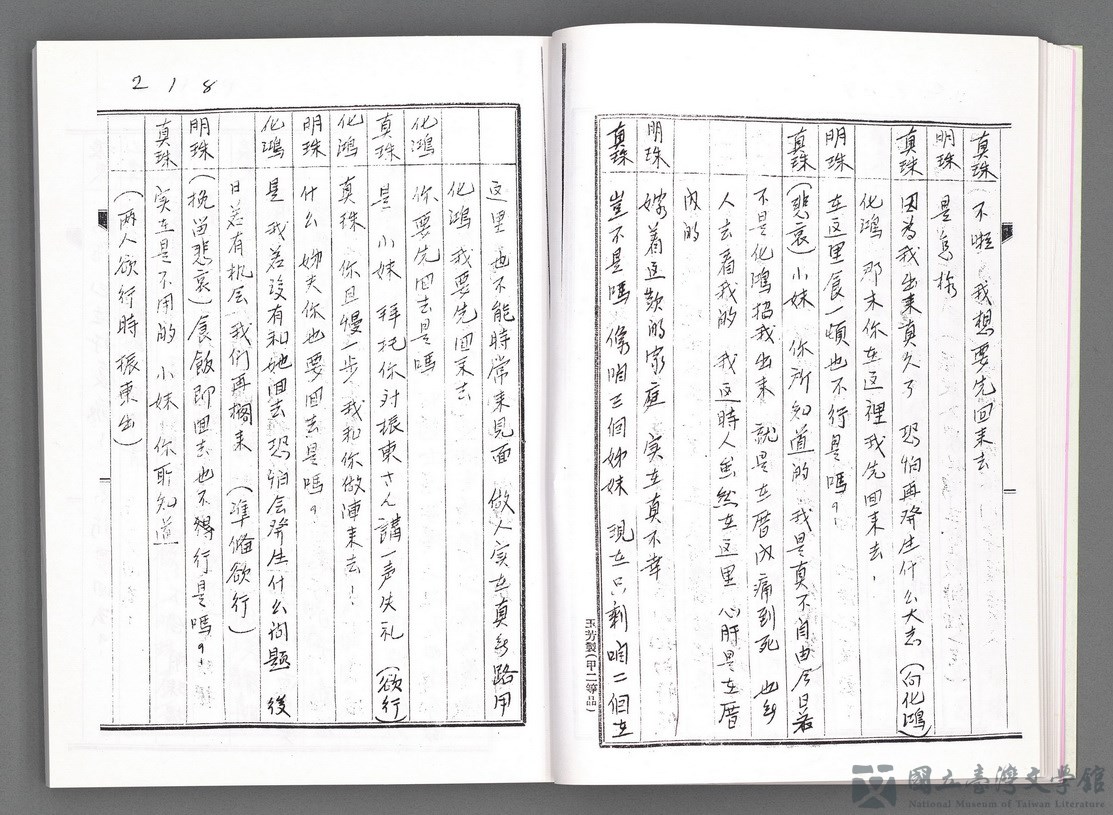 真珠 (不啦 我想要先回來去
明珠 是怎樣
真珠 因為我出来真久了 恐怕再發生什么大志 (向化鴻)
化鴻 那末你在这裡我先回来去.
明珠 在这里食一頓也不行是嗎?!
真珠 (悲哀) 小妹 你所知道的 我是真不自由今日若
不是化鴻招我出来 就是在厝内痛到死 也無
人去看我的 我这時人虽然在这里 心肝是在厝
内的
明珠 嫁着这款的家庭 实在真不幸
真珠 豈不是嗎 像咱三個姊妹 現在只剩咱二個在
玉芳製(甲二等品)
218
这里 也不能時常来見面 做人实在真無路用
化鴻 我要先回来去
化鴻 你要先回去是嗎
真珠 是 小妹 拜托你对振東さん講一声失礼 (欲行)
化鴻 真珠 你且慢一步 我和你做陣来去!
明珠 什么 姊夫你也要回去是嗎?
化鴻 是 我若没有和她回去 恐怕会發生什么问題 後
日若有机会 我们再擱来 (準備欲行)
明珠 (挽留悲哀) 食飯即回去也不得行是嗎?!
真珠 实在是不用的 小妹 你所知道
(两人欲行時 振東出)
國立臺灣文學館
National Museum of Taiwan Literature